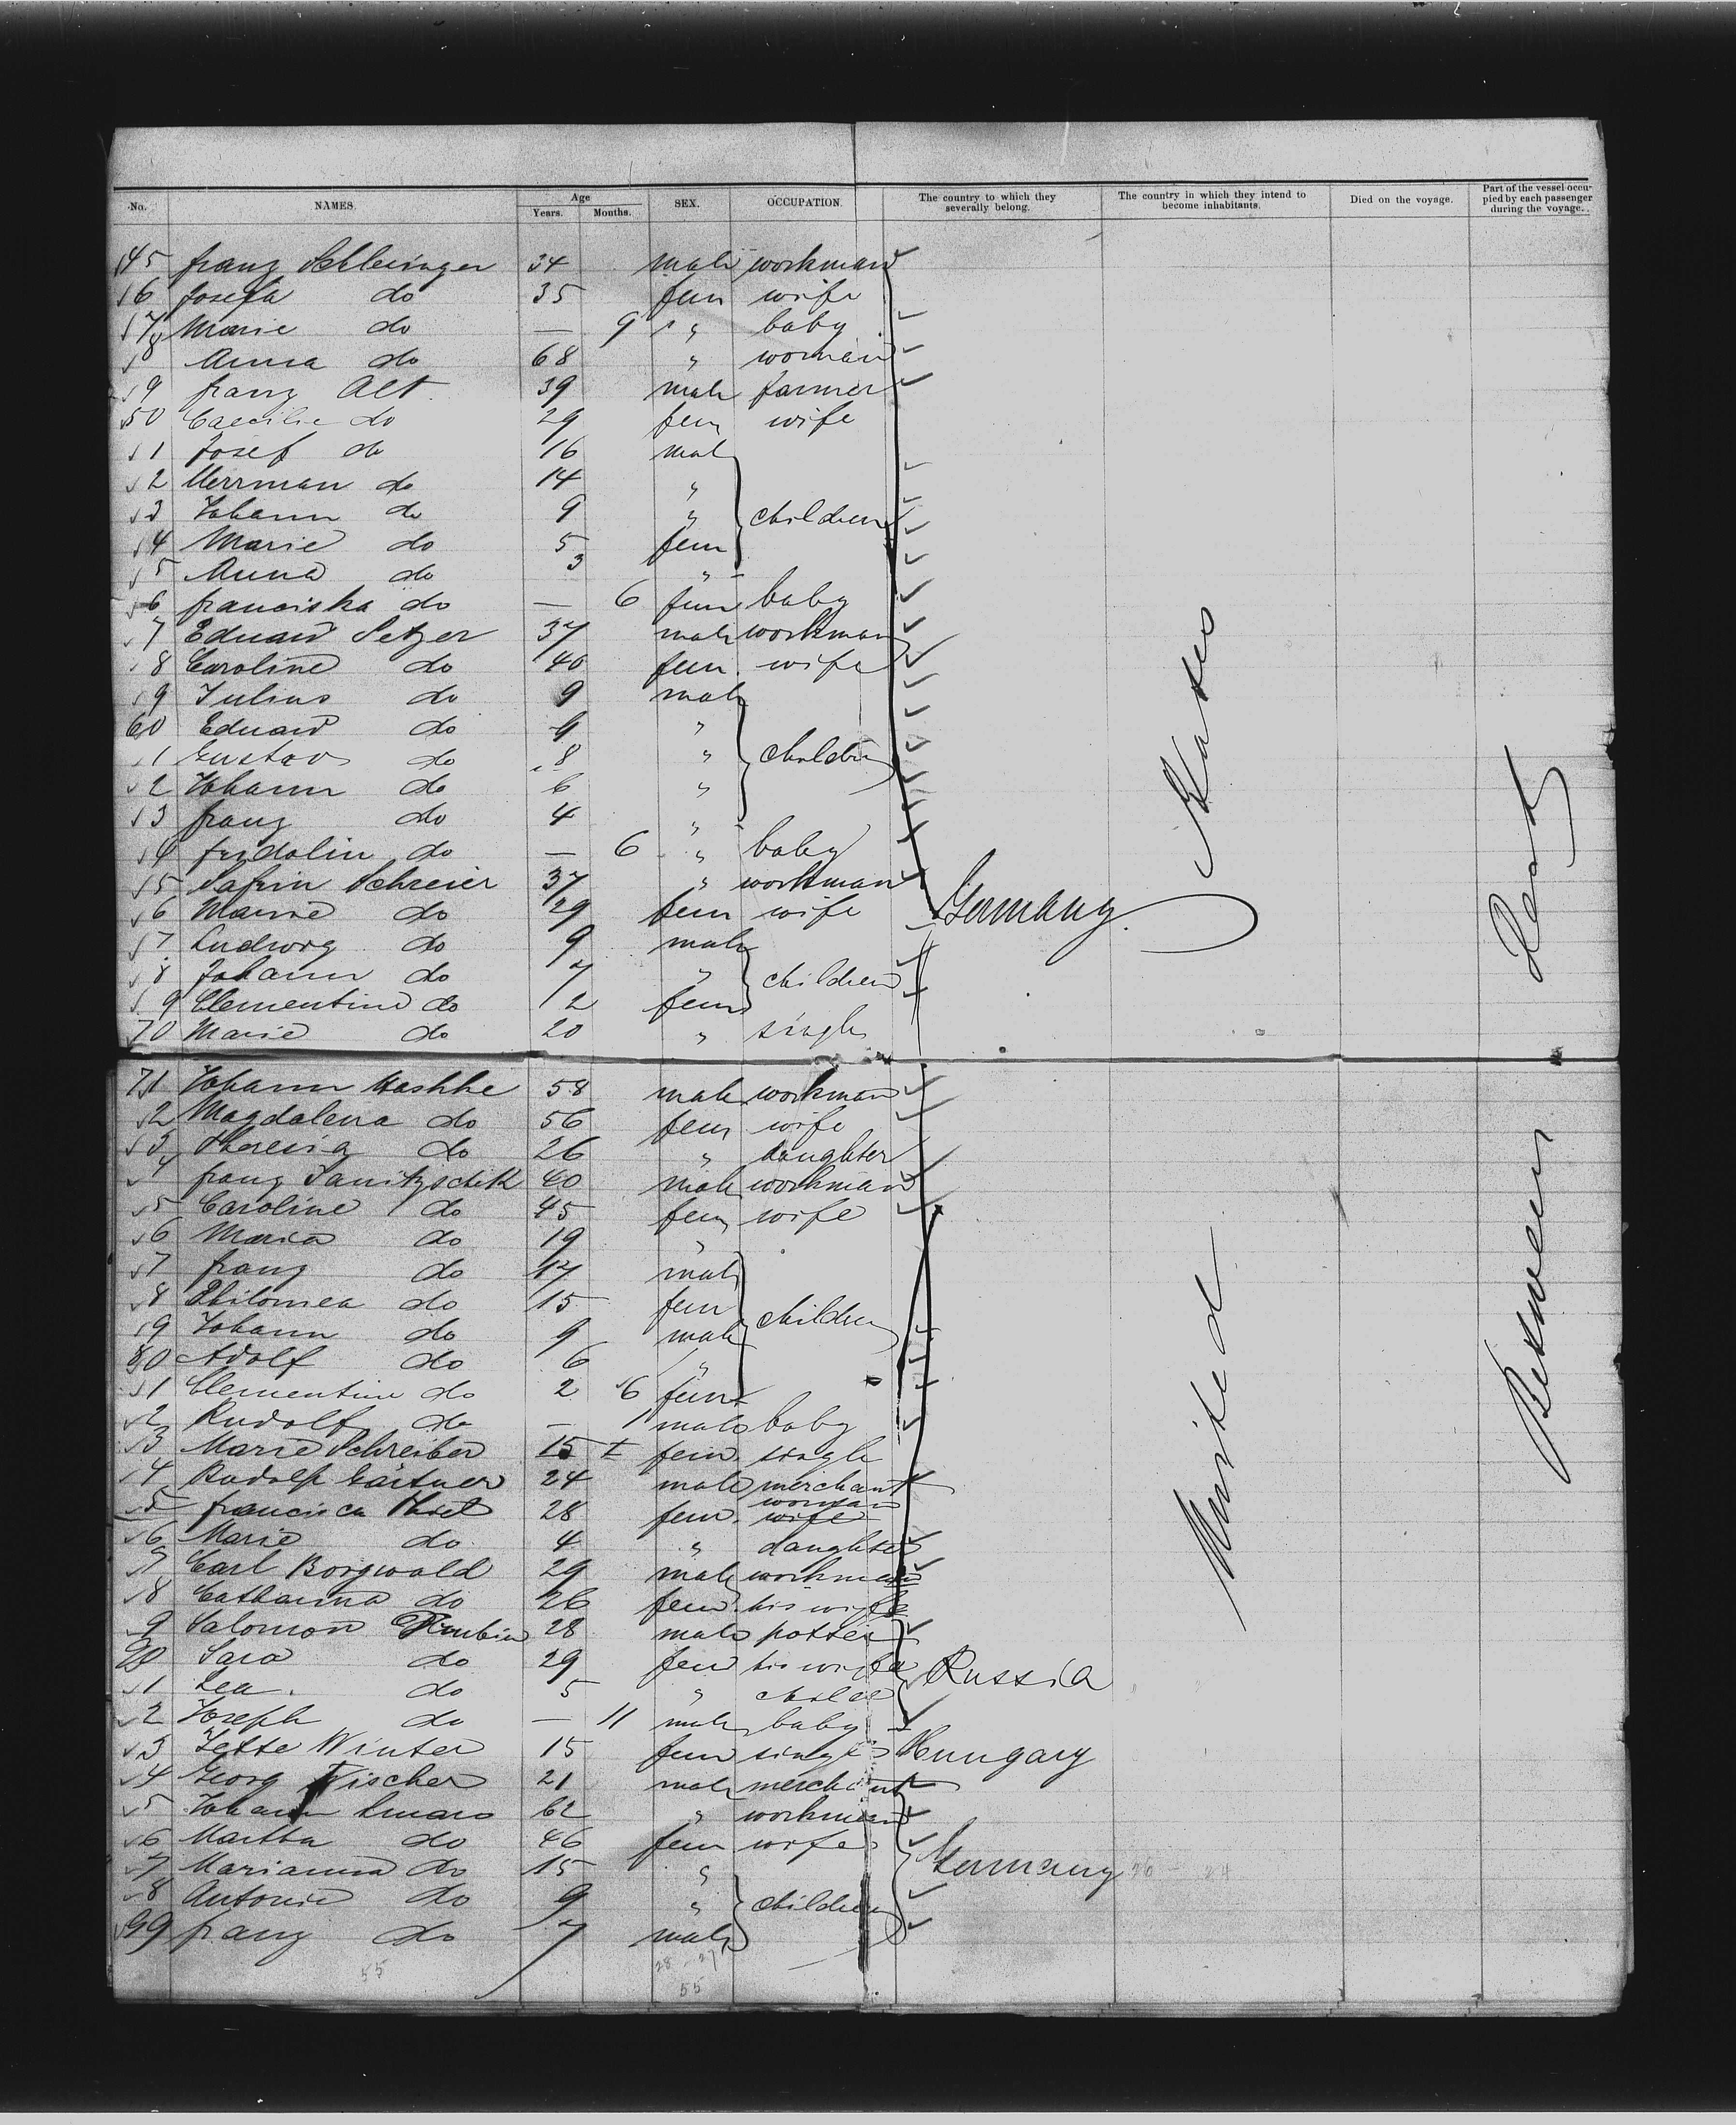 No. NAMES. Age Years. Months. SEX. OCCUPATION. The country to which they severally belong. The country in which they intend to become inhabitants. Died on the voyage. Part of the vessel occupied by each passenger during the voyage.
45 franz Schlesinger 34 male workman
6 Josefa do 35 fem wife
7 Marie do — 9 " baby
8 Anna do 68 " woman
9 franz Alt 39 male farmer
50 Caecilie do 29 fem wife
1 Josef do 16 male
2 Herrman do 14 "
3 Johann do 9 " children
4 Marie do 5 fem
5 Anna do 3 "
6 franciska do — 6 fem baby
7 Eduard Setzer 37 male workman
8 Caroline do 40 fem wife
9 Julius do 9 male
60 Eduard do 9 "
1 Gustav do 8 " children
2 Johann do 6 "
3 franz do 4 "
4 fridolin do — 6 " baby
5 Schreier 37 " workman
6 Marie do 29 fem wife Germany.
7 Ludwig do 9 male
8 Johann do 7 " children
9 Clementine do 2 fem
70 Marie do 20 " single
71 Johann Hashke 58 male workman
2 Magdalena do 56 fem wife
3 Theresia do 26 " daughter
4 franz 40 male workman
5 Caroline do 45 fem wife
6 Maria do 19 "
7 franz do 17 male
8 Philomea do 15 fem children
9 Johann do 9 male
80 Adolf do 6 "
1 Clementine do 2 6 fem
2 Rudolf do — 1 male baby
3 Marie Schreiber 15 fem single
4 Rudolf Gärtner 24 male merchant
5 francisca 28 fem. woman wife
6 Marie do 4 " daughter
7 Carl Borgwald 29 male workman
8 Catharina do 26 fem his wife
9 Salomon 28 male potter
90 Sara do 29 fem his wife Russia
1 Lea do 5 " child
2 Joseph do — 11 male baby
3 Jette Winter 15 fem single Hungary
4 Georg Fischer 21 male merchant
5 Johann 62 " workman
6 Martha do 46 fem wife
7 Marianna do 15 " Germany
8 Antonie do 9 " children
99 franz do 7 male
United States
Between Deck
55
28 - 27
55